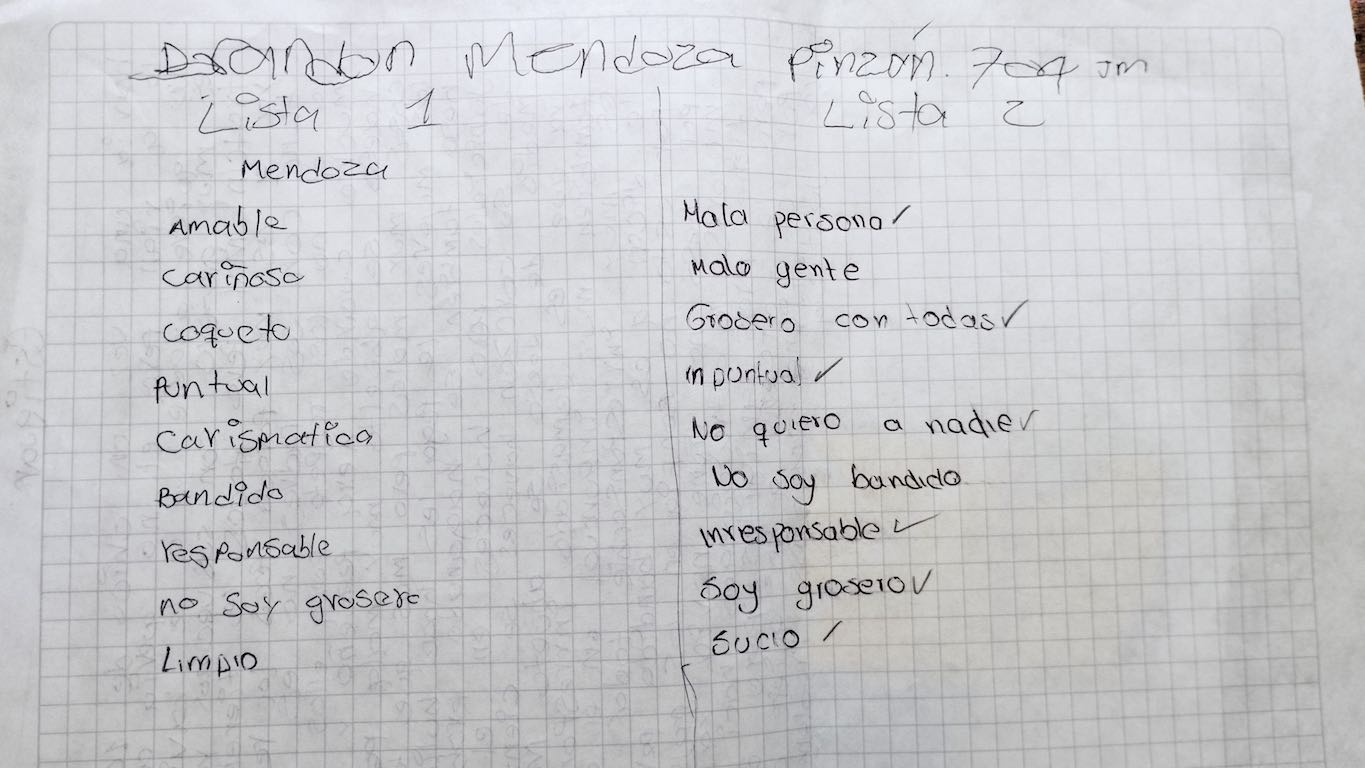 Brandon Mendoza Pinzón. 704 JM
Lista 1
Mendoza
Amable
cariñoso
coqueto
puntual
carismatico
Bandido
responsable
no soy grosero
Limpio
Lista 2
Mala persona ✓
Malo gente
Grosero con todas ✓
inpuntual ✓
No quiero a nadie ✓
No soy bandido
inresponsable ✓
Soy grosero ✓
Sucio ✓